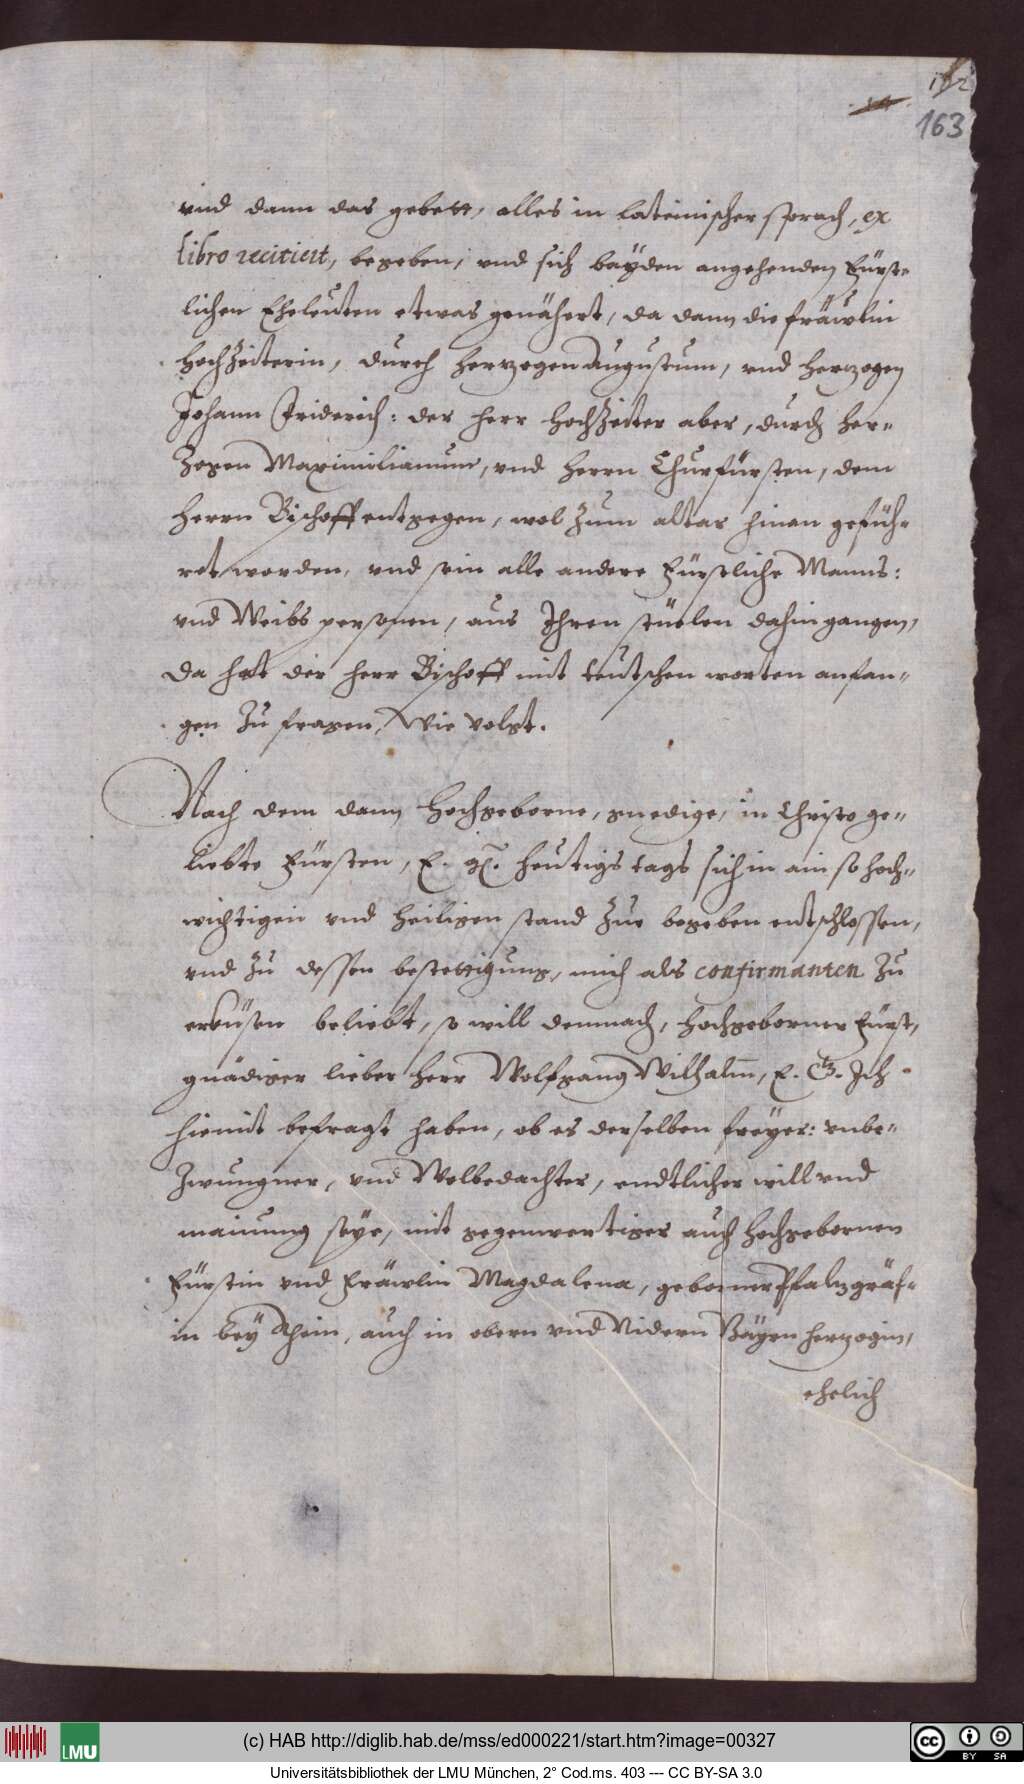 162
163
vnd dann das gebett, alles in lateinischer sprach, ex
libro recitiert, begeben, vnd sich bayden angehenden Fürst-
lichen Eheleuten etwas genähert, da dann die fräwlin
hochzeiterin, durch herzogen Augustum, vnd herzogen
Johann Friderich: der herr hochzeiter aber, durch her-
zogen Maximilianum, vnd herrn Churfürsten, dem
herrn Bischoff entgegen, wol zum altar hinan gefüh-
ret worden, vnd sein alle andere Fürstliche Manns:
vnd Weibs personen, aus Ihren stüelen dahin gangen,
da hat der herr Bischoff mit teutschen worten anfan-
gen zu fragen, Wie volgt.
Nach dem dann hochgeborne, gnedige, in Christo ge-
liebte Fürsten, E. heutigs tags sich in ain so hoch-
wichtigen vnd heiligen stand zue begeben entschlossen,
vnd zu dessen bestettigung, mich als confirmanten zu
erküsen beliebt, so will demnach, hochgeborner Fürst,
gnädiger lieber herr Wolfgang Wilhalm, E. G. Ich
hiemit befragt haben, ob es derselben freyer: vnbe-
zwungner, vnd Wolbedachter, endtlicher will vnd
mainung seye, mit gegenwertiger auch hochgebornen
Fürstin vnd Fräwlin Magdalena, geborner Pfalzgräf-
in bey Rhein, auch in obern vnd Nidern Bäyrn herzogin,
ehelich
(c) HAB http://diglib.hab.de/mss/ed000221/start.htm?image=00327
LMU
cc BY SA
Universitätsbibliothek der LMU München, 2° Cod.ms. 403 --- CC BY-SA 3.0